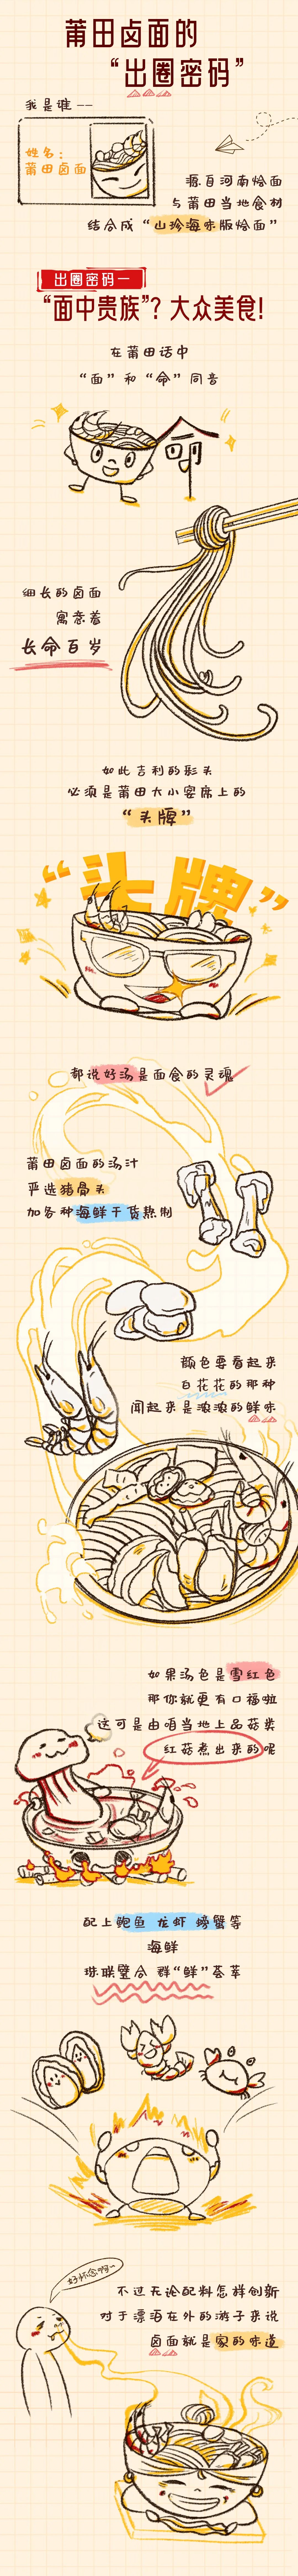 莆田卤面的
“出圈密码”
我是谁——
姓名：
莆田卤面
源自河南烩面
与莆田当地食材
结合成“山珍海味版烩面”
出圈密码一
“面中贵族”？大众美食！
在莆田话中
“面”和“命”同音
命
细长的卤面
寓意着
长命百岁
如此吉利的彩头
必须是莆田大小宴席上的
“头牌”
“头牌”
都说好汤是面食的灵魂
莆田卤面的汤汁
严选猪骨头
加各种海鲜干货熬制
颜色要看起来
白花花的那种
闻起来是浓浓的鲜味
如果汤色是雪红色
那你就更有口福啦
这可是由咱当地上品菇类
红菇煮出来的呢
配上鲍鱼 龙虾 螃蟹等
海鲜
珠联璧合 群“鲜”荟萃
好怀念啊~
不过无论配料怎样创新
对于漂泊在外的游子来说
卤面就是家的味道